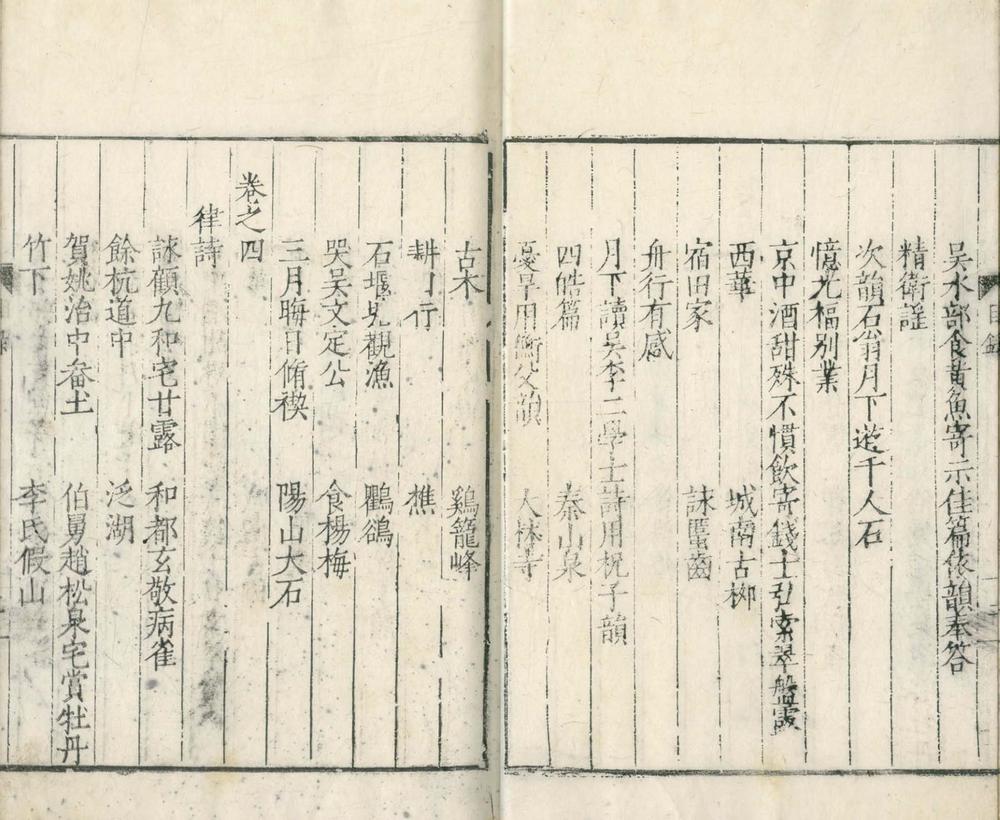 吳水部食黃魚寄示佳篇依韻奉答
精衛謡
次韻石翁月下遊千人石
憶光福别業
京中酒甜殊不慣飲寄錢士弘索翠盤露
西華 城南古柳
宿田家 詠齒
舟行有感
月下讀吳李二學士詩用祝子韻
四皓篇 秦山泉
憂旱用衡父韻 大林寺
古木 鷄籠峰
耕行 樵
石堰兒觀漁 鸜鵒
哭吳文定公 食楊梅
三月晦日脩禊 陽山大石
卷之四
律詩
詠顧九和宅甘露 和都玄敬病雀
餘杭道中 泛湖
賀姚治中畚土 伯舅趙松泉宅賞牡丹
竹下 李氏假山
目錄